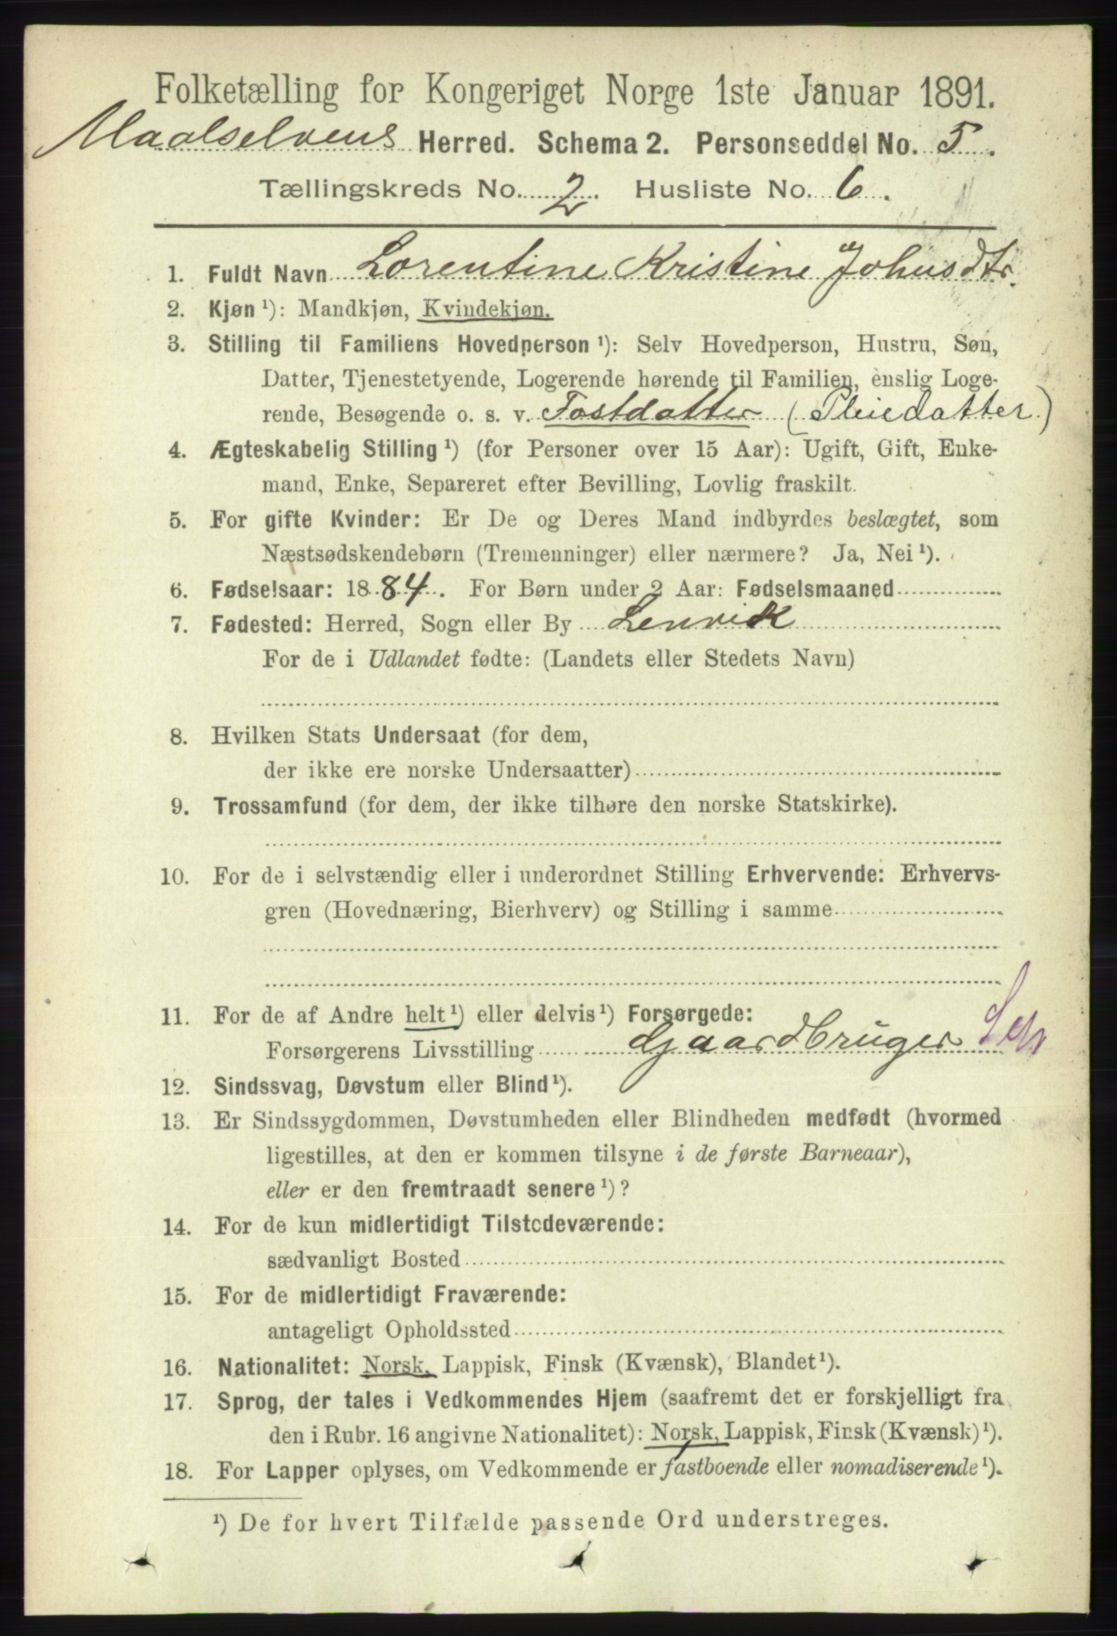 Folketælling for Kongeriget Norge 1ste Januar 1891.
Maalselvens Herred. Schema 2. Personseddel No. 5.
Tællingskreds No. 2. Husliste No. 6.
1. Fuldt Navn Lorentine Kristine Johnsdtr.
2. Kjøn ¹): Mandkjøn, Kvindekjøn.
3. Stilling til Familiens Hovedperson ¹): Selv Hovedperson, Hustru, Søn,
Datter, Tjenestetyende, Logerende hørende til Familien, enslig Loge-
rende, Besøgende o. s. v. Fostdatter (Pleiedatter)
4. Ægteskabelig Stilling ¹) (for Personer over 15 Aar): Ugift, Gift, Enke-
mand, Enke, Separeret efter Bevilling, Lovlig fraskilt.
5. For gifte Kvinder: Er De og Deres Mand indbyrdes beslægtet, som
Næstsødskendebørn (Tremenninger) eller nærmere? Ja, Nei ¹).
6. Fødselsaar: 1884. For Børn under 2 Aar: Fødselsmaaned
7. Fødested: Herred, Sogn eller By Lenvik
For de i Udlandet fødte: (Landets eller Stedets Navn)
8. Hvilken Stats Undersaat (for dem,
der ikke ere norske Undersaatter)
9. Trossamfund (for dem, der ikke tilhøre den norske Statskirke).
10. For de i selvstændig eller i underordnet Stilling Erhvervende: Erhvervs-
gren (Hovednæring, Bierhverv) og Stilling i samme
11. For de af Andre helt ¹) eller delvis ¹) Forsørgede:
Forsørgerens Livsstilling Gaardbruger
12. Sindssvag, Døvstum eller Blind ¹).
13. Er Sindssygdommen, Døvstumheden eller Blindheden medfødt (hvormed
ligestilles, at den er kommen tilsyne i de første Barneaar),
eller er den fremtraadt senere ¹)?
14. For de kun midlertidigt Tilstedeværende:
sædvanligt Bosted
15. For de midlertidigt Fraværende:
antageligt Opholdssted
16. Nationalitet: Norsk, Lappisk, Finsk (Kvænsk), Blandet ¹).
17. Sprog, der tales i Vedkommendes Hjem (saafremt det er forskjelligt fra
den i Rubr. 16 angivne Nationalitet): Norsk, Lappisk, Finsk (Kvænsk) ¹).
18. For Lapper oplyses, om Vedkommende er fastboende eller nomadiserende ¹).
¹) De for hvert Tilfælde passende Ord understreges.